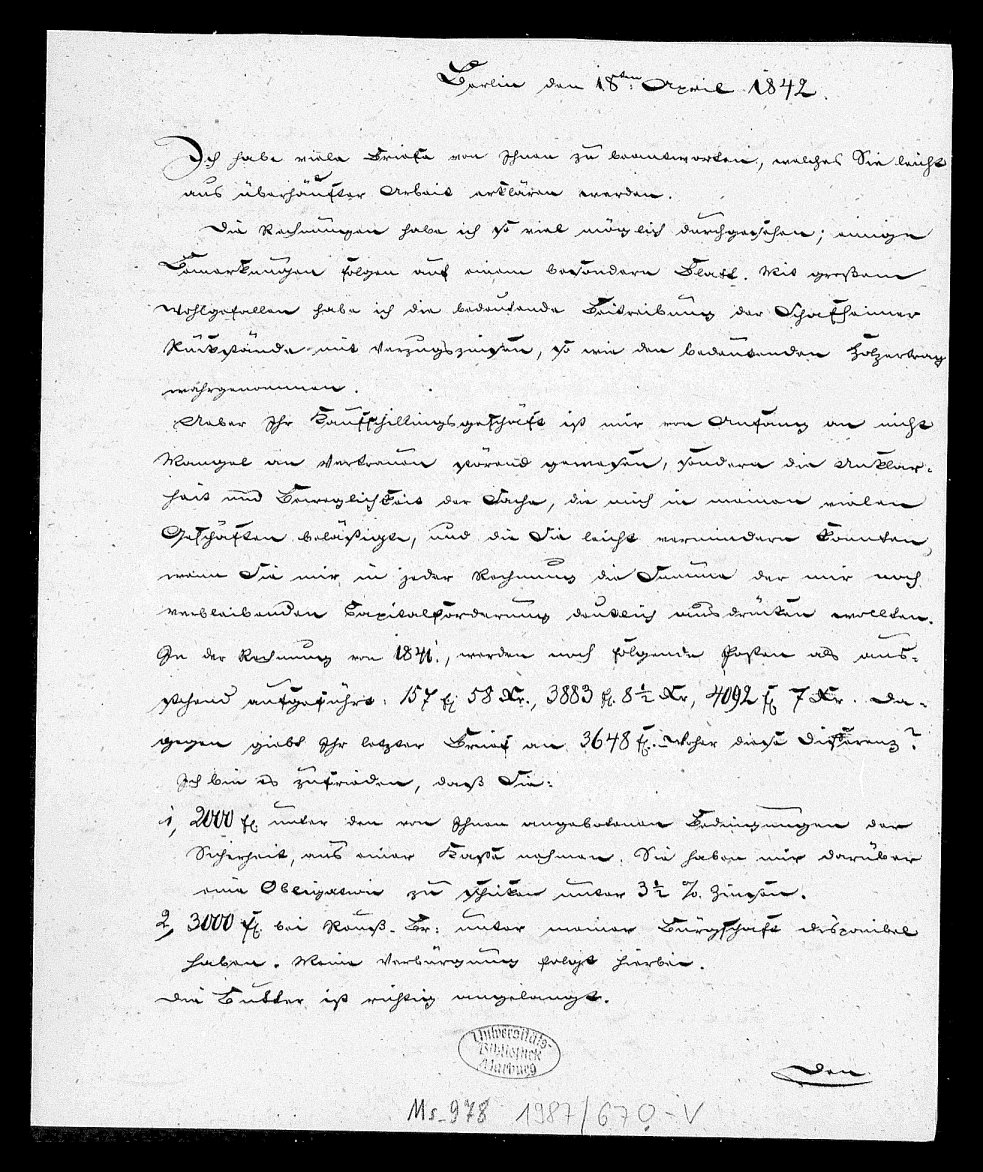 Berlin den 18ten April 1842.
Ich habe viele Briefe von Ihnen zu beantworten, welches Sie leicht
aus überhäufter Arbeit erklären werden.
Die Rechnungen habe ich so viel möglich durchgesehen; einige
Bemerkungen folgen auf einem besondern Blatt. Mit großem
Wohlgefallen habe ich die bedeutende Beitreibung der Schafheimer
Rückstände mit Verzugszinsen, so wie den bedeutenden Holzertrag
wahrgenommen.
Ueber Ihr Kaufschillingsgeschäft ist mir von Anfang an nicht
Mangel an Vertrauen störend gewesen, sondern die Unklar-
heit und Beweglichkeit der Sache, die mich in meinen vielen
Geschäften belästigte, und die Sie leicht vermindern konnten,
wenn Sie mir in jeder Rechnung die Summe der mir noch
verbleibenden Capitalforderung deutlich ausdrücken wollten.
In der Rechnung von 1841., werden noch folgende Posten als aus-
stehend aufgeführt: 157 fl 58 Xr., 3883 fl. 8½ Xr, 4092 fl 7 Xr. Da-
gegen giebt Ihr letzter Brief an 3648 fl. Woher diese Differenz?
Ich bin es zufrieden, daß Sie:
1, 2000 fl unter den von Ihnen angebotenen Bedingungen der
Sicherheit, aus einer Kasse nehmen. Sie haben mir darüber
eine Obligation zu schicken unter 3½ %. Zinsen.
2, 3000 fl. bei Br: unter meiner Bürgschaft disponibel
haben. Meine Verbürgung folgt hierbei.
Die Butter ist richtig angelangt.
Universitäts-
Bibliothek
Marburg
Den
Ms. 978 1987/670-V